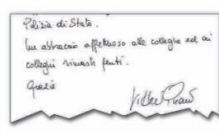 Polizia di Stato.
Un abbraccio affettuoso alle colleghe ed ai
colleghi rimasti feriti.
Grazie